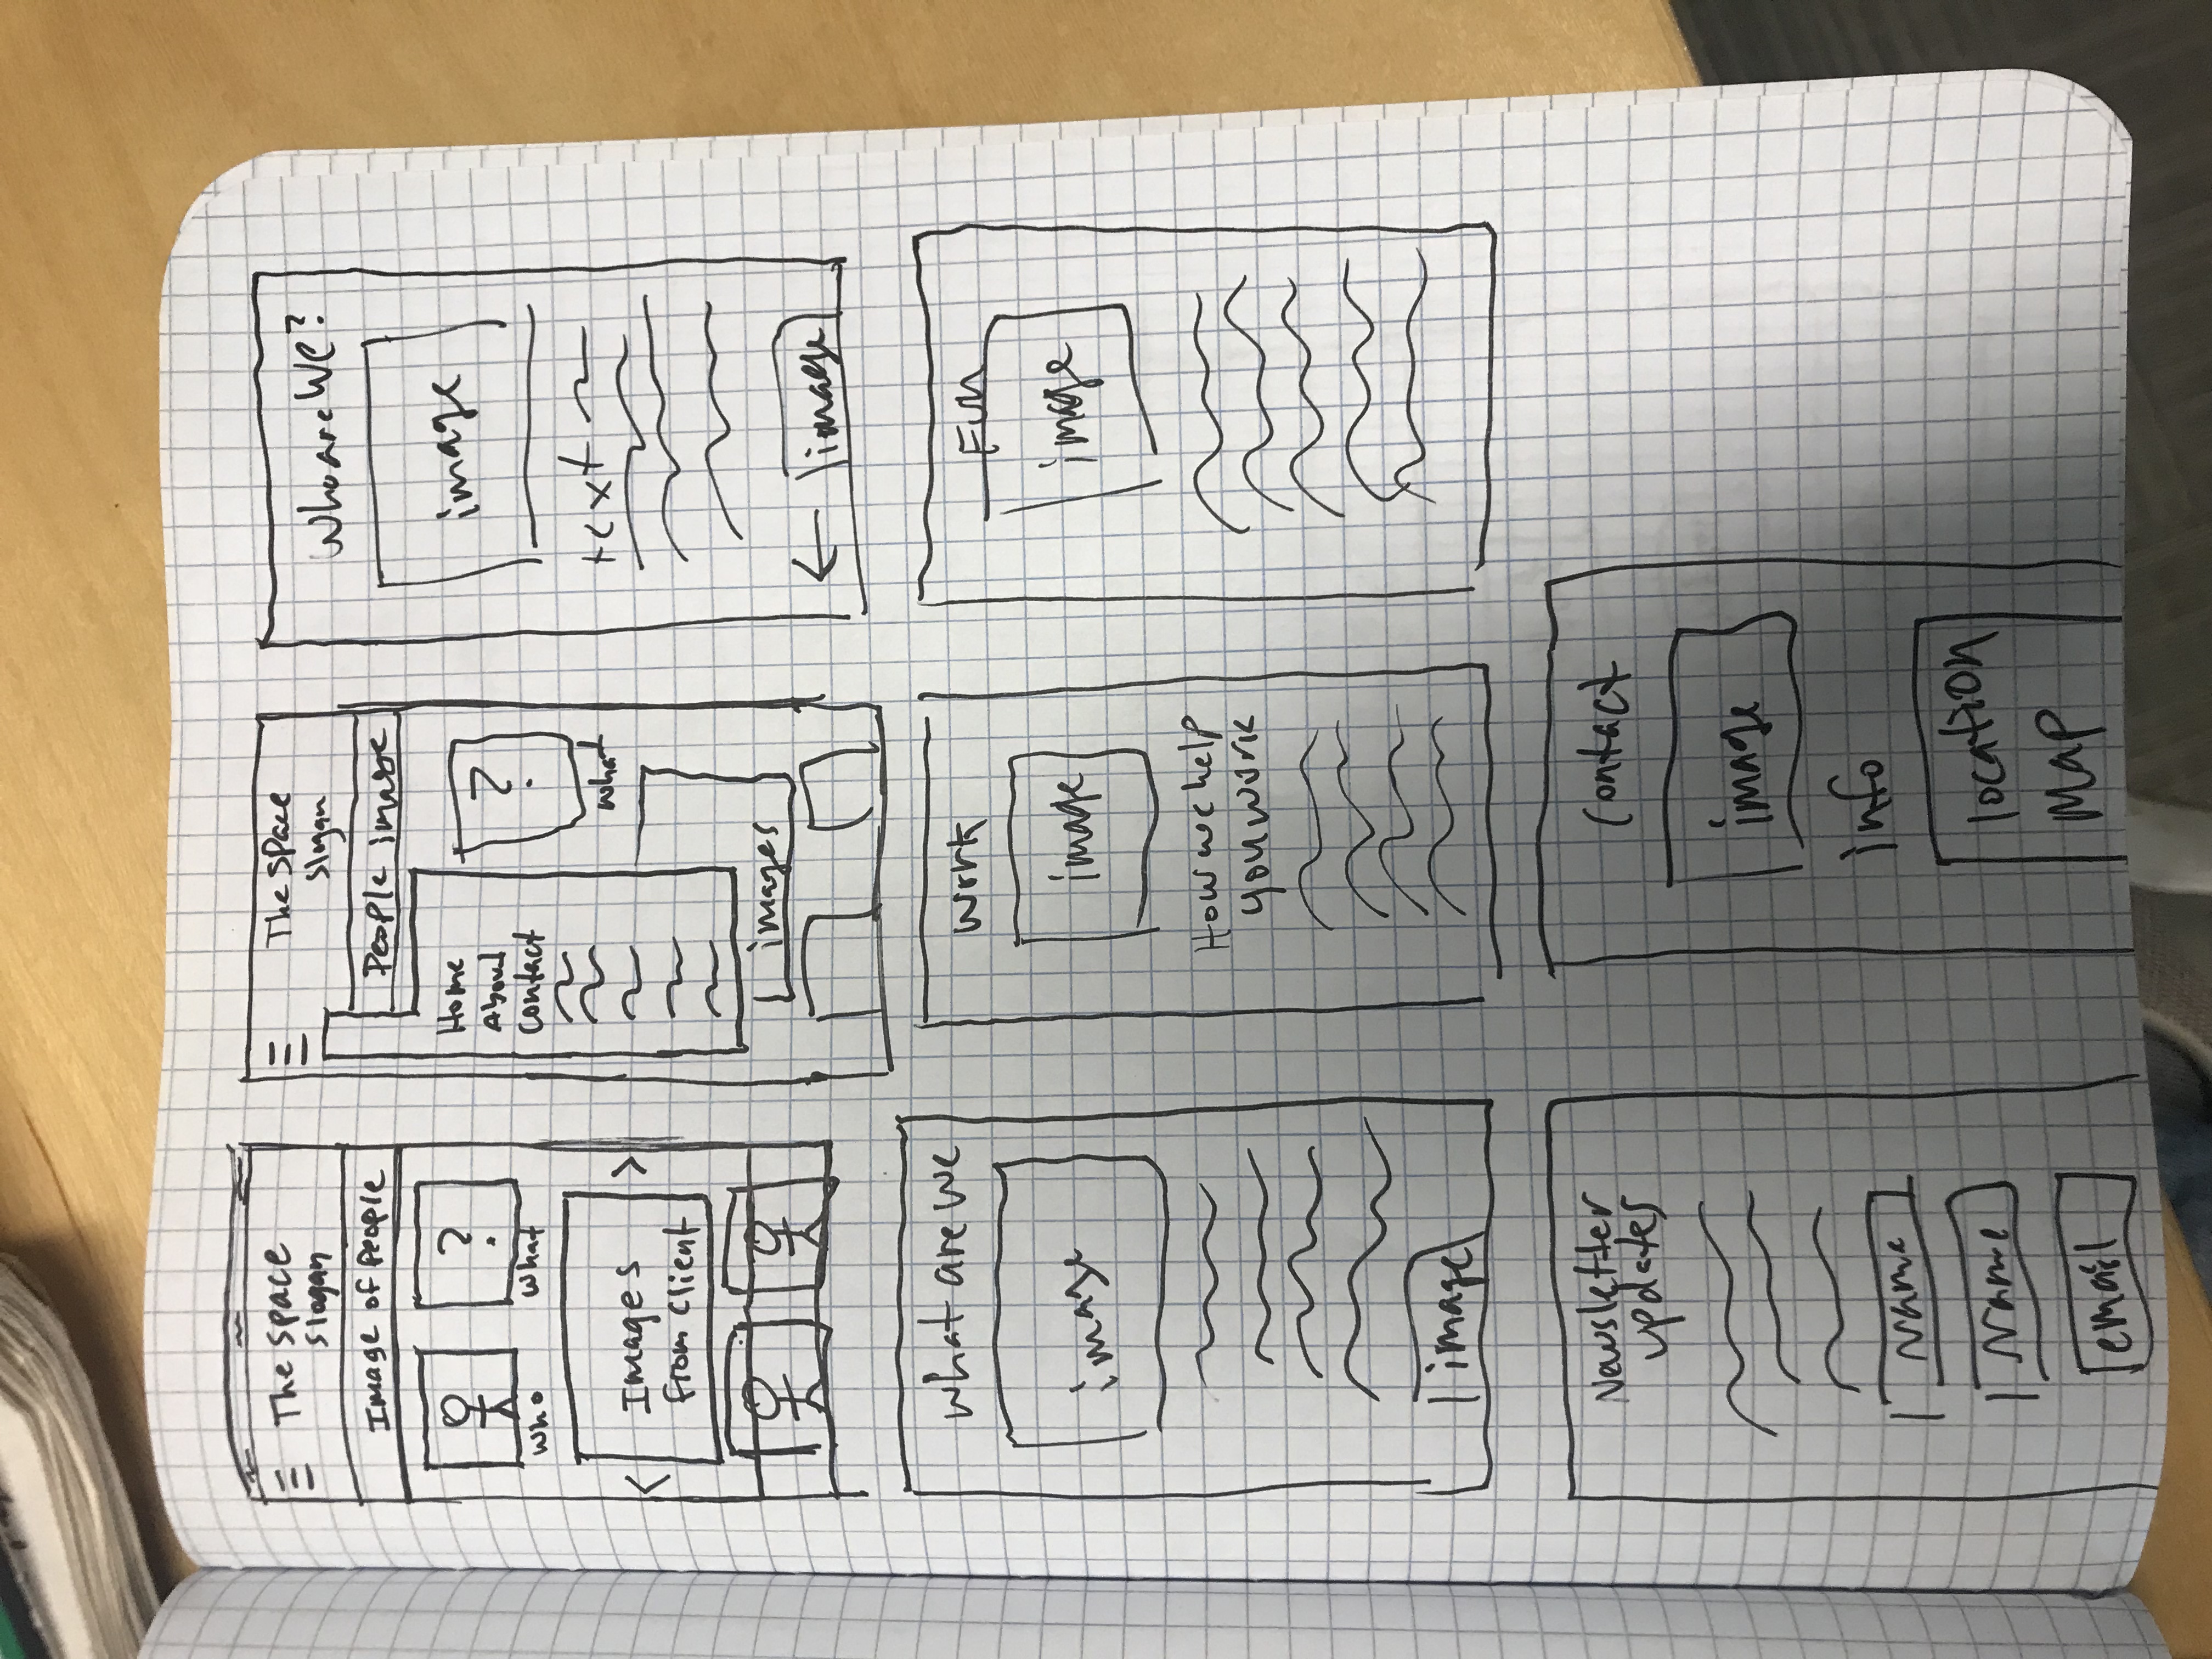 The space
slogan
Image of People
?
who
what
Images
from client
The space
slogan
People image
Home
About
Contact
?
what
images
Who are We?
image
text
image
What are We
image
image
Work
image
How we help
you work
Fun
image
Newsletter
updates
Name
Name
email
Contact
image
info
location
Map